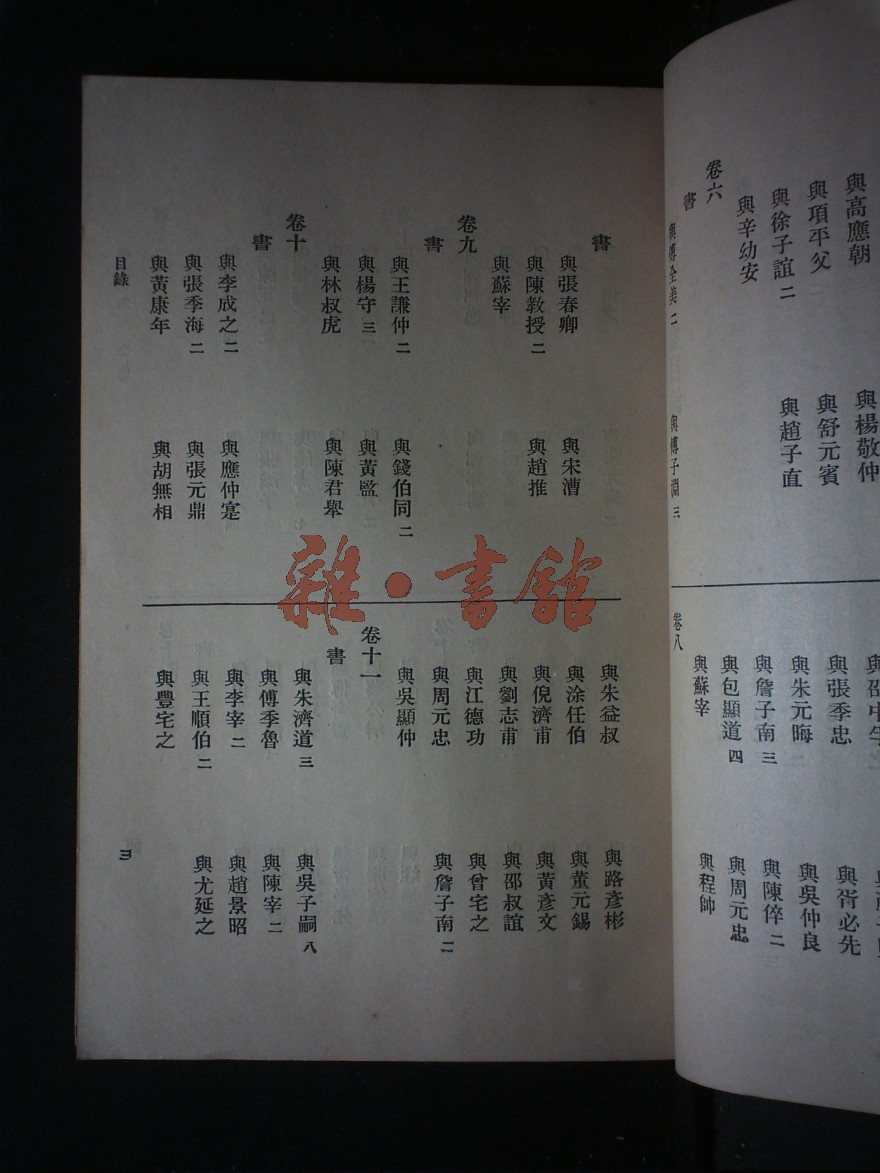 與高應朝
與楊敬仲
與項平父
與舒元賓
與徐子誼 二
與趙子直
與辛幼安
卷六
書
與傅全美 二
與傅子淵 三
與張季忠
與胥必先
與朱元晦
與吳仲良
與詹子南 三
與陳倅 二
與包顯道 四
與周元忠
與蘇宰
與程帥
卷八
書
與張春卿
與宋漕
與陳教授 二
與趙推
與蘇宰
卷九
書
與王謙仲 二
與錢伯同 二
與楊守 三
與黃監
與林叔虎
與陳君舉
卷十
書
與李成之 二
與應仲寔
與張季海 二
與張元鼎
與黃康年
與胡無相
與朱益叔
與路彥彬
與涂任伯
與董元錫
與倪濟甫
與黃彥文
與劉志甫
與邵叔誼
與江德功
與曾宅之
與周元忠
與詹子南 二
與吳顯仲
卷十一
書
與朱濟道 三
與吳子嗣 八
與傅季魯
與陳宰 二
與李宰 二
與趙景昭
與王順伯 二
與尤延之
與豐宅之
目錄
三
雜·書館